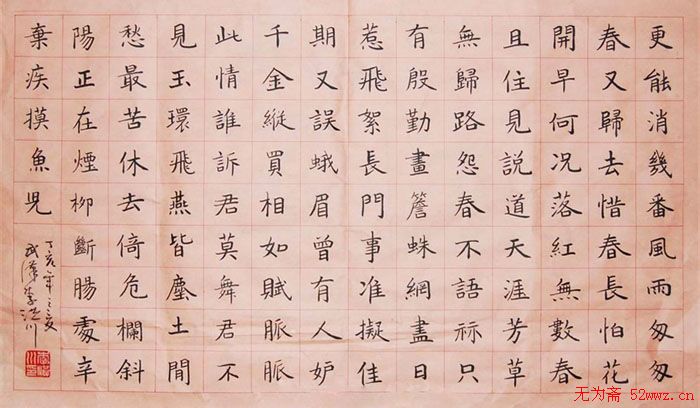 更能消幾番風雨匆匆
春又歸去惜春長怕花
開早何况落紅無數春
且住見説道天涯芳草
無歸路怨春不語祘只
有殷勤畫簷蛛網盡日
惹飛絮長門事准擬佳
期又誤蛾眉曾有人妒
千金縱買相如賦脈脈
此情誰訴君莫舞君不
見玉環飛燕皆塵土閒
愁最苦休去倚危欄斜
陽正在煙柳斷腸處辛
棄疾摸魚兒
丁亥年之夏
武漢李洪川
无为斋 52wwz.cn